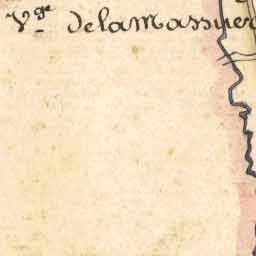 V.ge de la Massuer